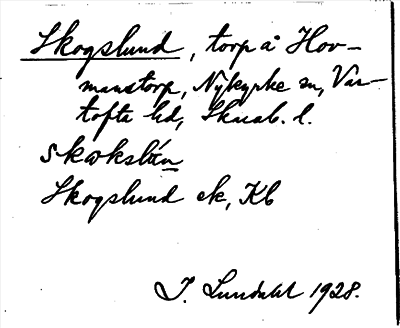 Skogslund, torp å Hov-
manstorp, Nykyrke sn, Var-
tofta hd, Skarab. l.
skɷkslún
Skogslund ek, Kb
I. Lundahl 1928.